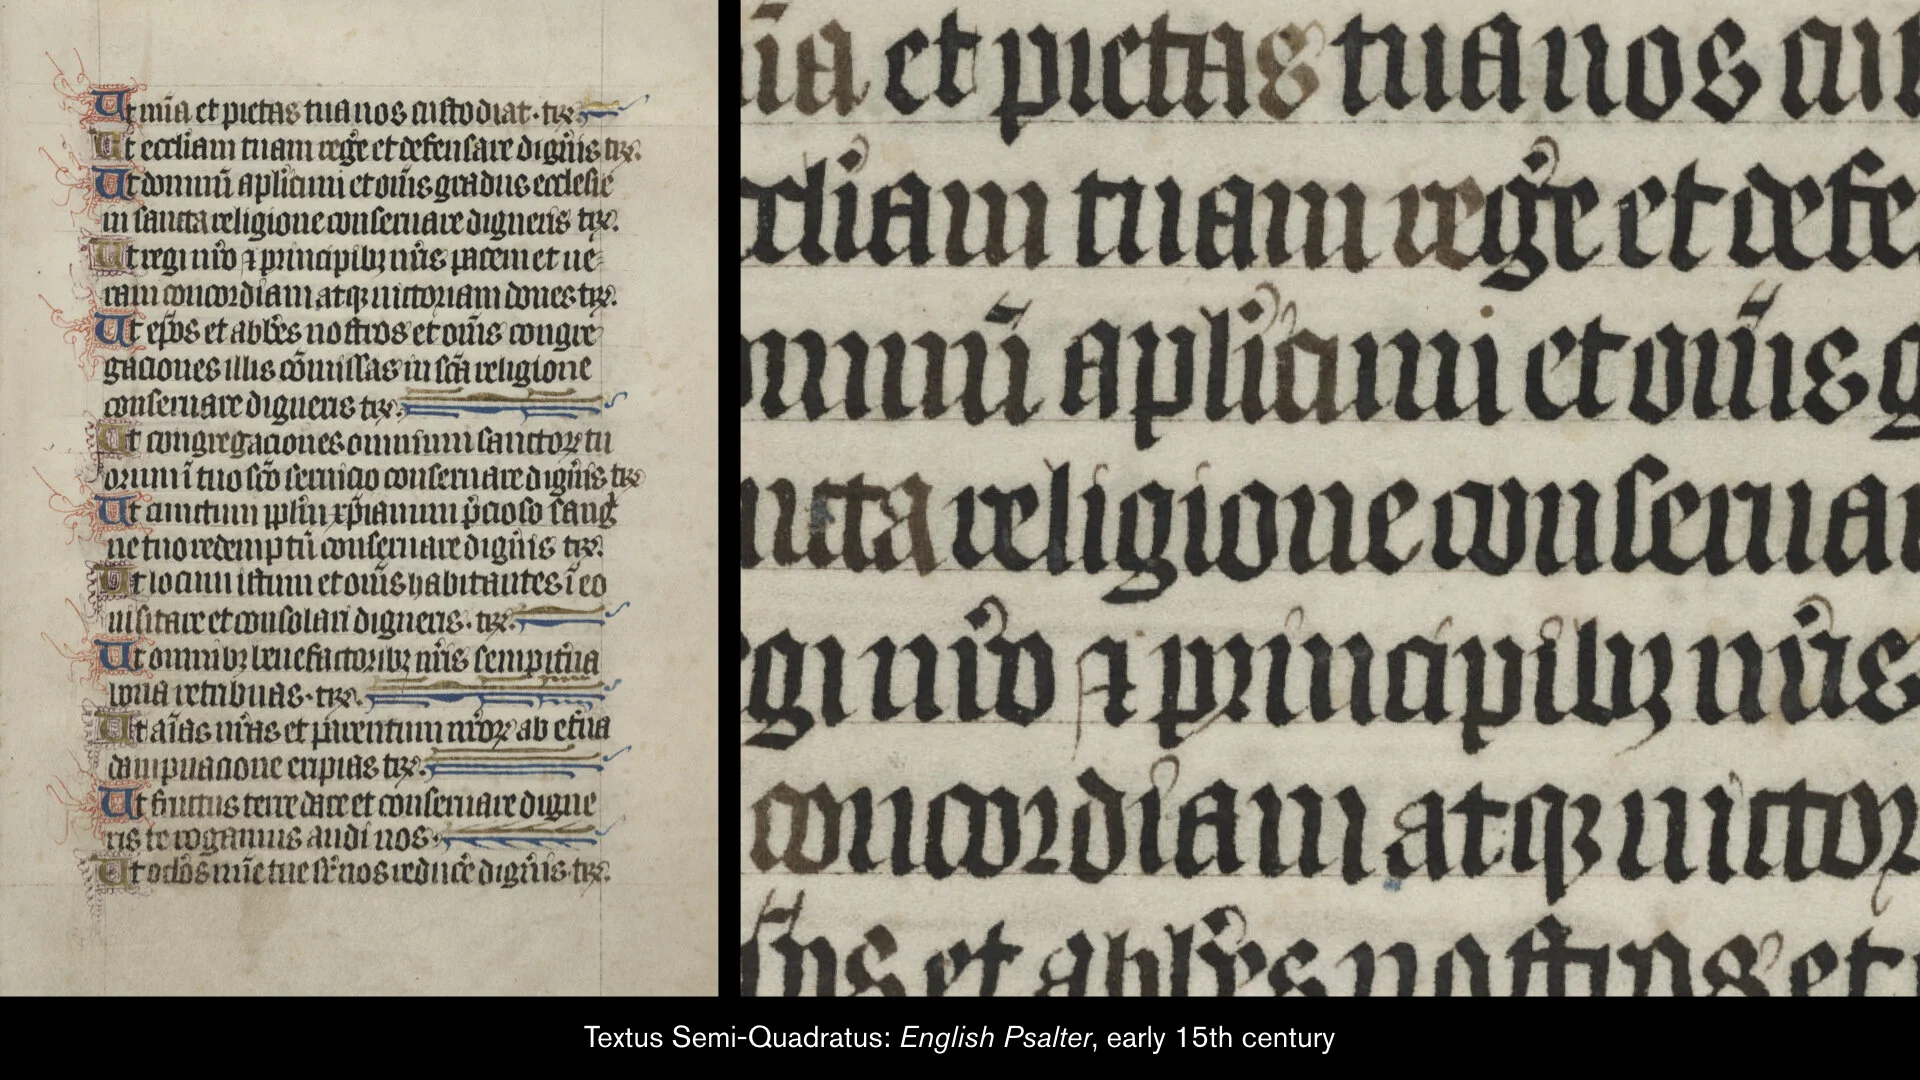 Ut mīa et pietas tua nos custodiat · trꝭ.
Ut eccl̄iam tuam reg̉e et defensare dign̉is trꝭ.
Ut domnū ap̄licum̄ et om̄is gradus ecclesie
in sancta religione conseruare digneris trꝭ.
Ut regib̓ ⁊ principibꝫ nr̄is pacem et ue-
ram concordiam atqꝫ uictoriam dones trꝭ.
Ut ep̄os et abb̓es nostros et om̄is congre
gaciones illis cōmissas in sc̄a religione
conseruare digneris trꝭ.
Ut congregaciones omnium sanctoꝝ tu
orum ī tuo sc̄o seruicio conseruare dign̓is trꝭ
Ut cunctum pp̄lm̄ xp̄ianum p̄cioso sang̓
ne tuo redemptū conseruare dign̓is trꝭ.
Ut locum istum et om̄is habitantes ī eo
uisitare et consolari digneris · trꝭ.
Ut omnibꝫ benefactoribꝫ nr̄is sempit̓na
bona retribuas · trꝭ.
Ut aīas nr̄as et parentum nr̄oꝝ ab et̓na
dampnacione eripias trꝭ.
Ut fructus terre dare et conseruare digne
ris te rogamus audi nos ·
Ut oc̄los mīe tue sr̓ nos reduc̓e dign̓is · trꝭ.
īa et pietas tua nos cus
ccl̄iam tuam reg̉e et defe
omnū ap̄licum̄ et om̄is g
ncta religione conseruar
gib̓ ⁊ principibꝫ nr̄is
concordiam atqꝫ uictor
et abb̓es nostros et
Textus Semi-Quadratus: English Psalter, early 15th century